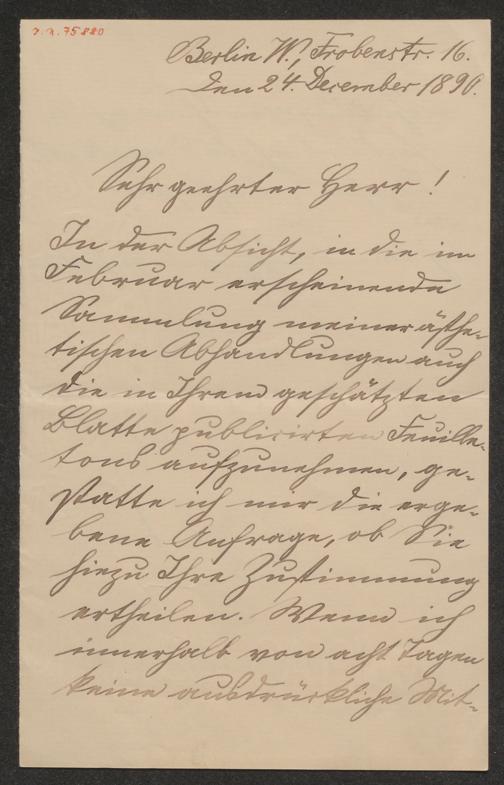 J. N. 75880
Berlin W., Frobenstr. 16.
Den 24. December 1890.
Sehr geehrter Herr!
In der Absicht, in die im
Februar erscheinende
Sammlung meiner ästhe-
tischen Abhandlungen auch
die in Ihrem geschätzten
Blatte publicirten Feuille-
tons aufzunehmen, ge-
statte ich mir die erge-
bene Anfrage, ob Sie
hiezu Ihre Zustimmung
ertheilen. Wenn ich
innerhalb von acht Tagen
keine ausdrückliche Mit-